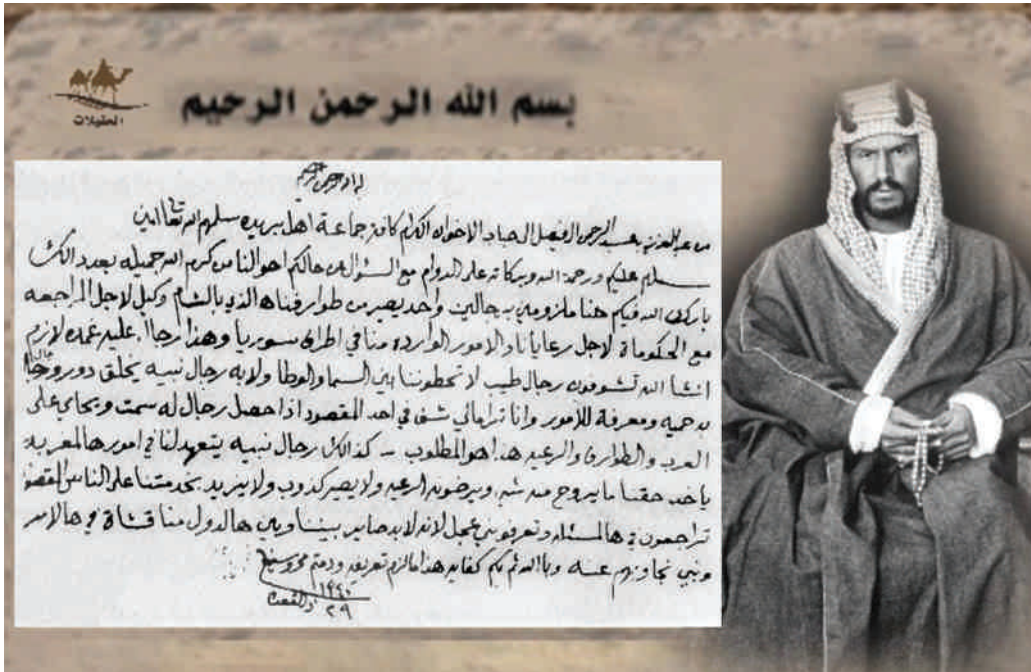 العقيلات
بسم الله الرحمن الرحيم
بسم الله الرحمن الرحيم
من عبدالعزيز بن عبد الرحمن الفيصل الى جناب الاخوان الكرام كافة جماعة اهل بريده سلمهم الله تعالى امين
سلام عليكم ورحمة الله وبركاته على الدوام مع السئوال عن حالكم احوالنا من كرم الله جميله بعد ذالك
بارك الله فيكم حنا ملزومين برجالين واحد يصير من طوارفنا هالذي بالشام وكيل لاجل المراجعه
مع الحكوماة لاجل رعايانا والامور الوارده منا في اطراف سوريا وهذا رجال عليه عمده لازم
انشا الله تشوفون رجال طيب لا تحطوننا بين السما والوطا ولابه رجال نبيه يخلق دورو رجال
به حميه ومعرفة للامور وانا ترا مالي شف في احد المقصود اذا حصل رجال له سمت ويحامي على
العرب والطوارف والرعيه هذا هو المطلوب كذالك رجال نبيه يتعهد لنا في امور هالمغربيه
ياخذ حقنا ما يروح منه شيه ويرضون الرعيه ولا يصير كذوب ولا يزيد بخدمتنا على الناس المقصود
تراجعون في هالمسئله وتعرفوني عجل لانه لابد صاير بيننا وبين هالدول مناقشاة في هالامر
ونبي نجاوبهم عنه وبالله ثم بكم كفايه هذا مالزم تعريفه ودمتم محروسين
٢٩ ذالقعده